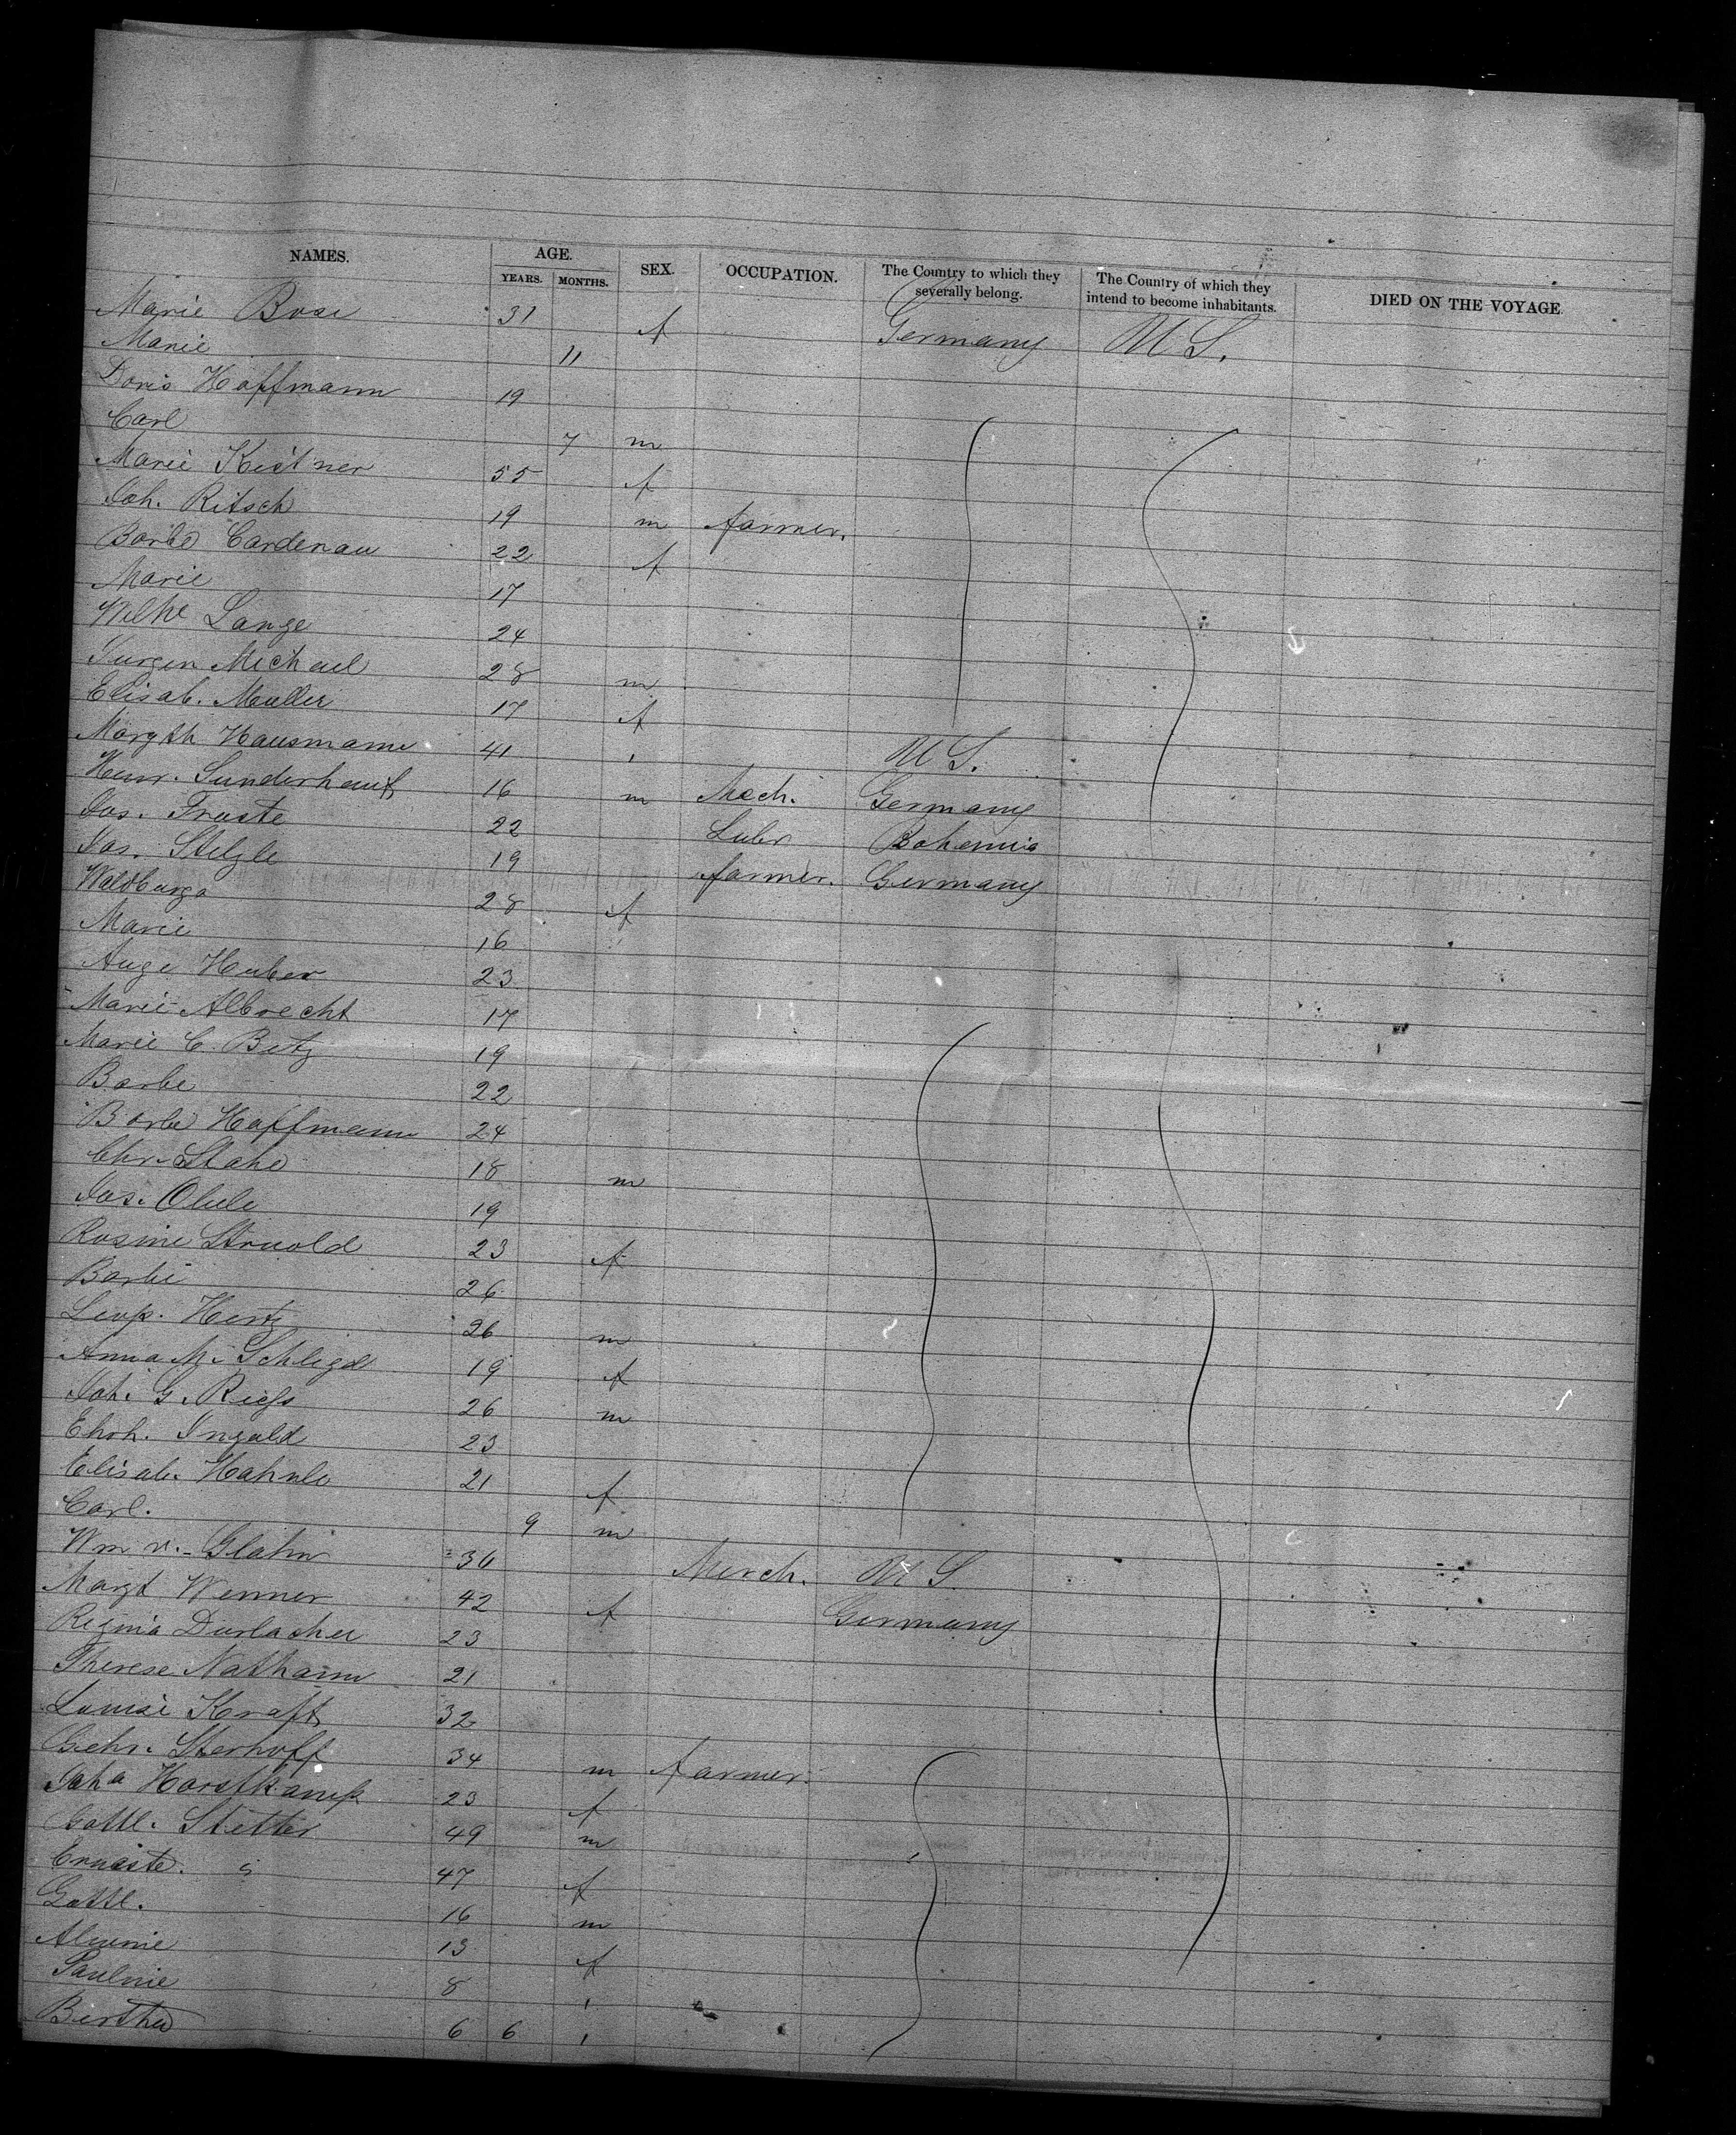 NAMES. AGE. SEX. OCCUPATION. The Country to which they severally belong. The Country of which they intend to become inhabitants. DIED ON THE VOYAGE
YEARS. MONTHS.
Marie Bose 31 f Germany U S.
Marie 11
Doris Hoffmann 19
Carl 7 m
Marie Kistner 55 f
Joh. Ritsch 19 m farmer.
Barbe Cardenau 22 f
Marie 17
Wilhe Lange 24
Jurgen Michael 28 m
Elisab. Muller 17 f
Margth Hausmann 41 " U S.
Henr. Sunderhauf 16 m Mech. Germany
Jos. Fraste 22 Labr Bohemia
Jos. Stelzle 19 farmer. Germany
Waldburga 28 f
Marie 16 "
Auge Huber 23
Marie Albrecht 17
Marie C. Betz 19
Barbe 22
Barbe Hoffmann 24
Chr. 18 m
Jos. 19
Rosine 23 f
Barbe 26
Leop. Hertz 26 m
Anna M. Schlegel 19 f
Joh. G. 26 m
Ingold 23
Elisab. Hahnle 21 f
Carl. 9 m
Wm v. Glahn 36 Merch. U S
Margt Wenner 42 f Germany
Regina Durlacher 23
Therese Nathann 21
Louise Kraft 32
Gehr. Sterhoff 34 m farmer.
Joha Horstkamp 23 f
Gottl. Stetter 49 m
Ernaste. 47 f
Gottl. 16 m
13 f
Pauline 8 "
Bertha 6 6 "